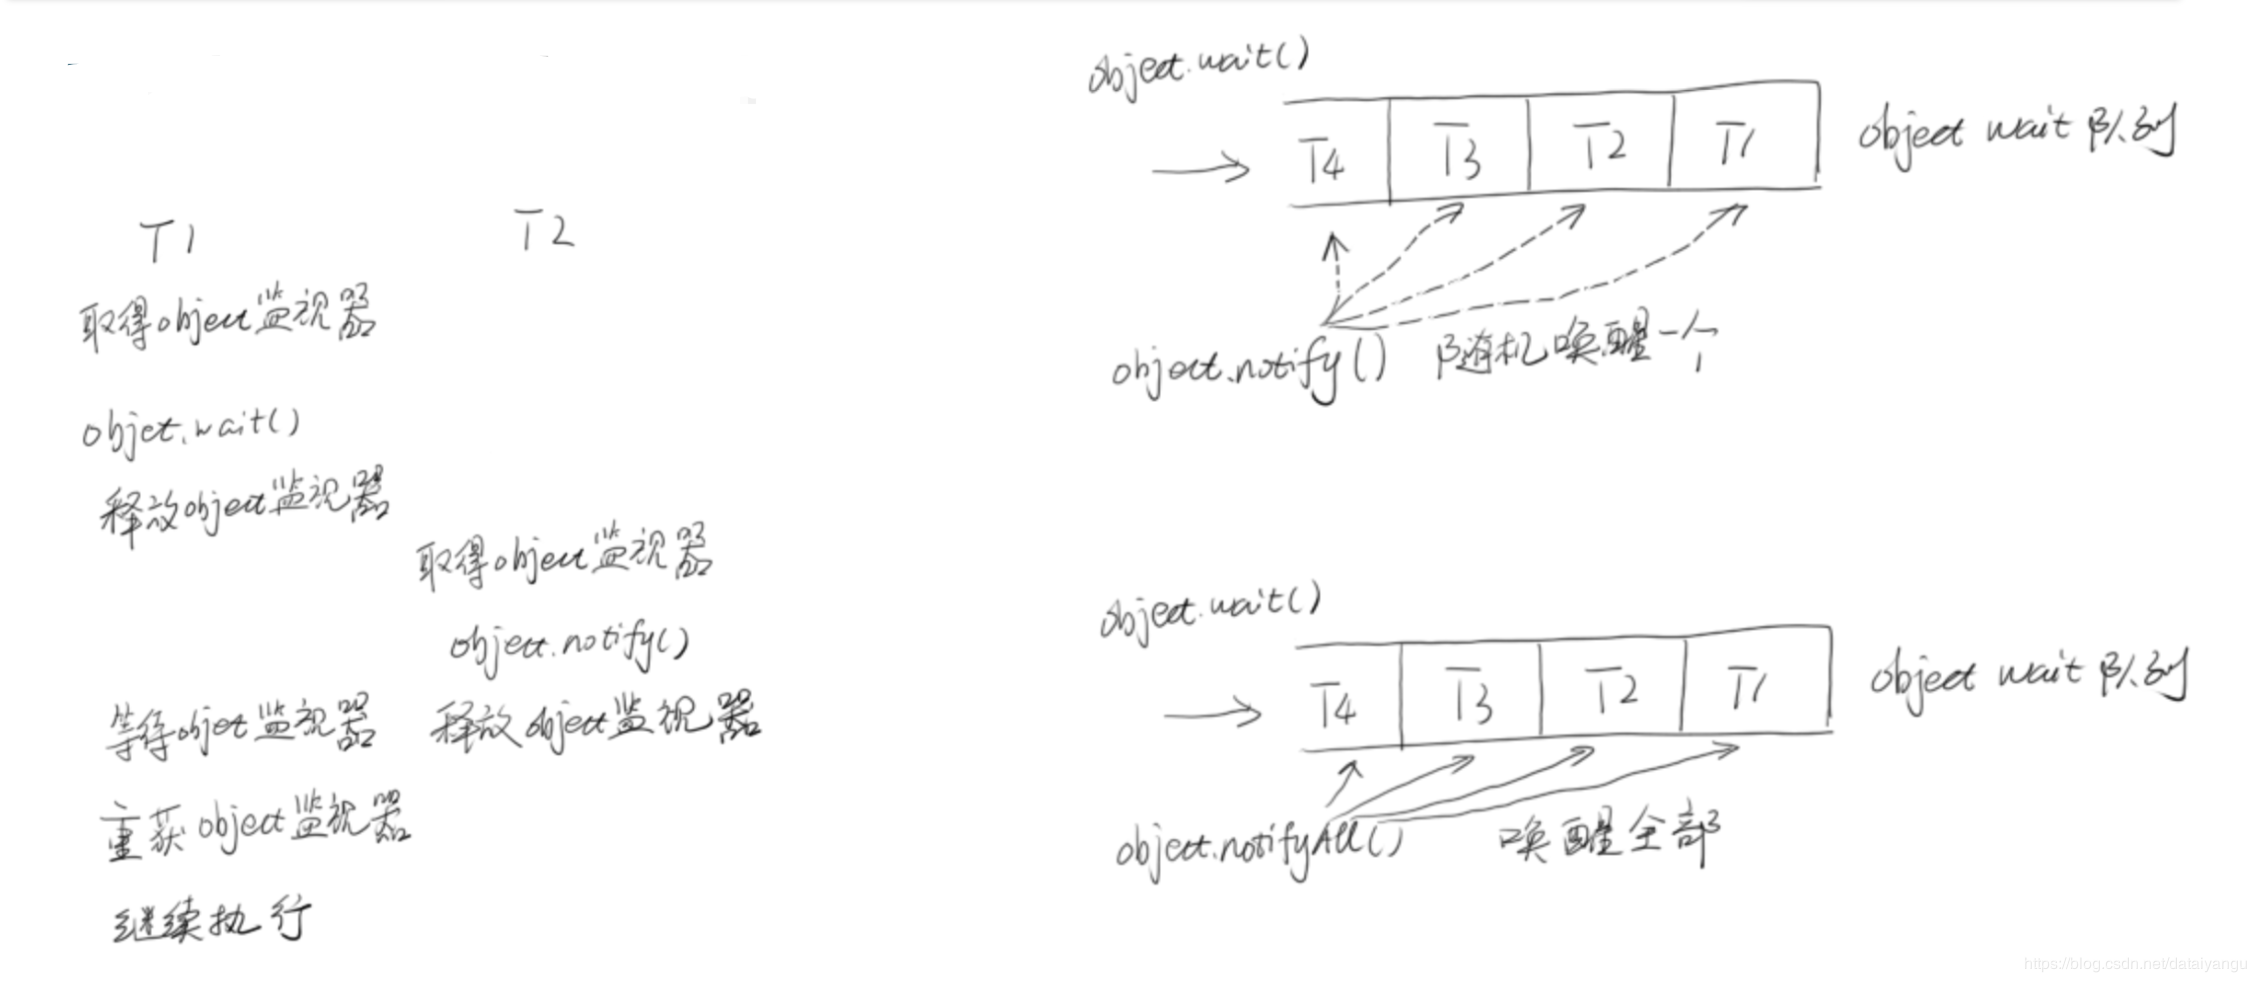 T1
T2
取得object监视器
objet.wait()
释放object监视器
取得object监视器
object.notify()
等待objet监视器
释放object监视器
重获object监视器
继续执行
object.wait()
T4 T3 T2 T1
object wait 队列
object.notify() 随机唤醒一个
object.wait()
T4 T3 T2 T1
object wait 队列
object.notifyAll() 唤醒全部
https://blog.csdn.net/dataiyangu